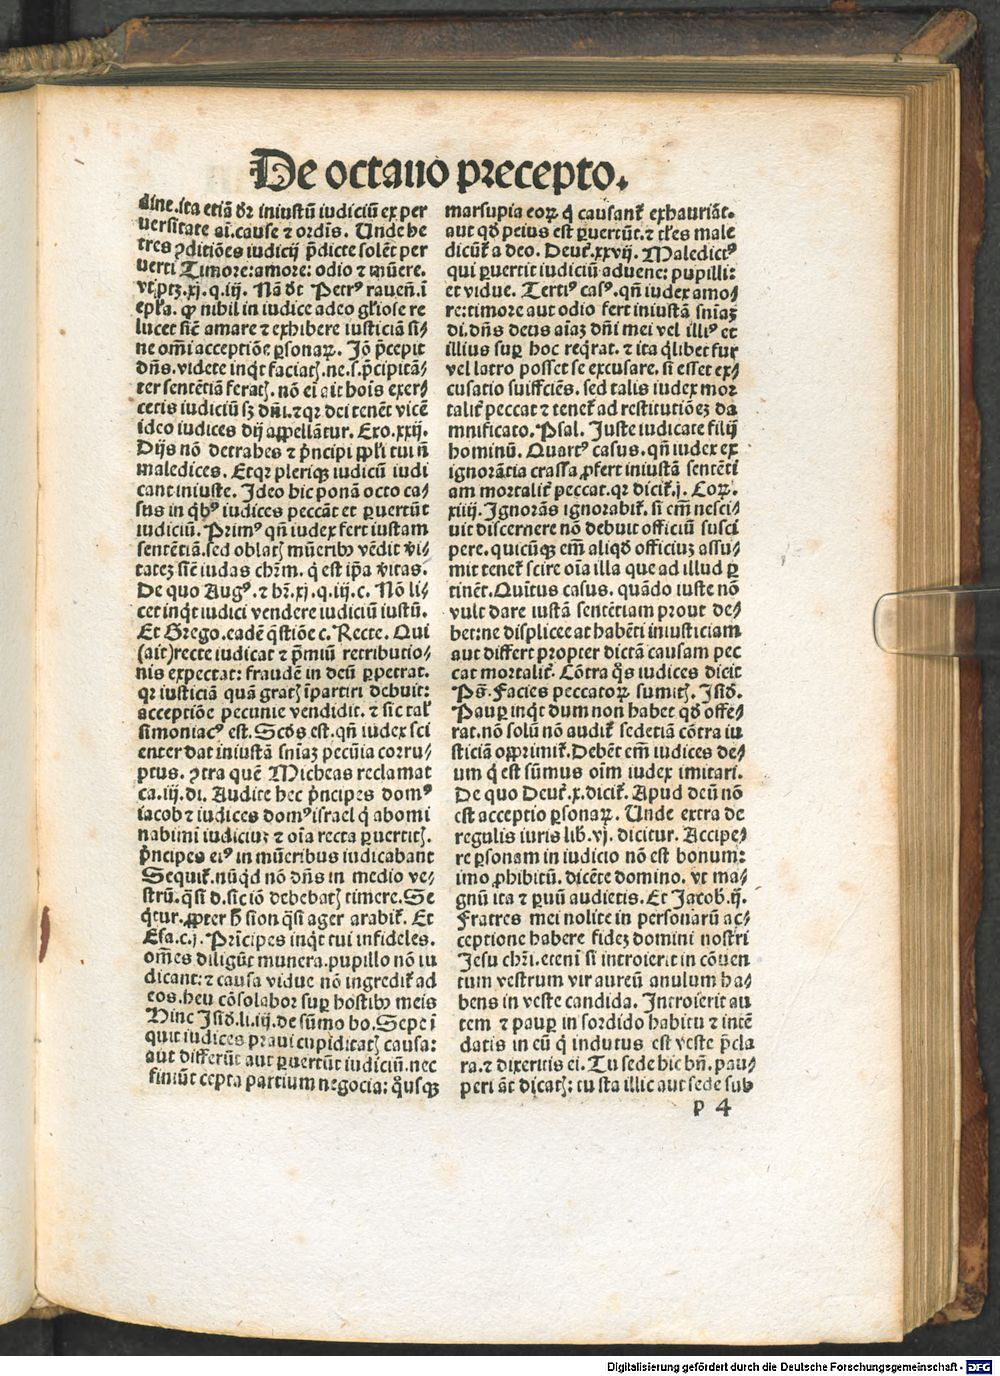 De octauo precepto.
dine.ita etiã dr̃ iniustũ iudiciũ ex per
uersitate ai.cause ⁊ ordĩs. Unde he
tres ꝯditiões iudicij p̃dicte solẽt per
uerti Timore:amore: odio ⁊ mũere.
vt ptꝫ.xj.q.iij. Nã dt Petrꝰ rauen̄.ĩ
ep̃la. ꝙ nihil in iudice adeo gl̃iose re
lucet sic̃ amare ⁊ exhibere iusticiã si⸗
ne om̃i acceptiõe ꝑsonaꝝ. Jõ p̃cepit
dñs. videte inq̇t faciatꝭ.ne.s.p̃cipitã⸗
ter sentẽtiã feratꝭ. nõ eĩ ait hoĩs exer⸗
cetis iudiciũ sꝫ dñi.⁊qꝛ dei tenẽt vicẽ
ideo iudices dij appellãtur. Exo.xxij.
Dijs nõ detrahes ⁊ p̃ncipi ppl̃i tui ñ
maledices. Etqꝛ pleriqꝫ iudicũ iudi
cant iniuste. Jdeo hic ponã octo ca⸗
sus in q̇bꝰ iudices peccãt et ꝑuertũt
iudiciũ. Primꝰ qñ iudex fert iustam
sentẽtiã.sed oblatꝭ mũeribꝰ vẽdit v̾i⸗
tateꝫ sic̃ iudas chr̃m. q̇ est ip̃a v̾itas.
De quo Augꝰ. ⁊ hr̃.xj.q.iij.c. Nõ li⸗
cet inq̇t iudici vendere iudiciũ iustũ.
Et Grego.eadẽ q̃stiõe c. Recte. Qui
(ait)recte iudicat ⁊ p̃miũ retributio⸗
nis expectat: fraudẽ in deũ ꝑpetrat.
qꝛ iusticiã quã gratꝭ ĩpartiri debuit:
acceptiõe pecunie vendidit. ⁊ sic tal̃
simoniacꝰ est. Scds̃ est.qñ iudex sci
enter dat iniustã sniãꝫ pecũia corru⸗
ptus. ꝯtra quẽ Micheas reclamat
ca.iij.di. Audite hec p̃ncipes domꝰ
iacob ⁊ iudices domꝰ israel q̇ abomi
nabimĩ iudiciuꝫ ⁊ oĩa recta ꝑuertitꝭ.
p̃ncipes eiꝰ in mũeribus iudicabant
Sequit̃. nũq̇d nõ dñs in medio ve⸗
strũ. q̃si d. sic iõ debebatꝭ timere. Se
q̇tur. ꝓpter h̾ sion q̃si ager arabit̃. Et
Esa.c.j. Prĩcipes inq̇t tui infideles.
om̃es diligũt munera.pupillo nõ iu
dicant:⁊ causa vidue nõ ingredit̃ ad
eos.heu cõsolabor suꝑ hostibꝰ meis
Hinc Jsid̾.li.iij.de sũmo bo. Sepe ĩ
quit iudices praui cupiditatꝭ causa:
aut differũt aut ꝑuertũt iudiciũ.nec
finiũt cepta partium negocia: q̊usqꝫ
marsupia eoꝝ q̇ causant̃ exhauriãt.
aut qd̾ peius est ꝑuertũt.⁊ tl̃es male
dicũt̃ a deo. Deut̃.xxvij. Maledictꝰ
qui ꝑuertit iudiciũ aduene: pupilli:
et vidue. Tertiꝰ casꝰ.qñ iudex amo⸗
re:timore aut odio fert iniustã sniãꝫ
di.dñs deus aiãꝫ dñi mei vel illiꝰ et
illius suꝑ hoc req̇rat. ⁊ ita q̇libet fur
vel latro posset se excusare. si esset ex⸗
cusatio suifficiẽs. sed talis iudex mor
talit̃ peccat ⁊ tenet̃ ad restitutiõeꝫ da
mnificato. Psal. Juste iudicate filij
hominũ. Quartꝰ casus. qñ iudex ex
ignorãtia crassa ꝓfert iniustã sentẽti
am mortalit̃ peccat.qꝛ dicit̃.j. Coꝝ.
xiiij. Jgnorãs ignorabit̃. si em̃ nesci⸗
uit discernere nõ debuit officiũ susci
pere. quicũqꝫ em̃ aliqd̾ officiuꝫ assu⸗
mit tenet̃ scire oĩa illa que ad illud ꝑ
tinẽt. Quĩtus casus. quãdo iuste nõ
vult dare iustã sentẽtiam prout de⸗
bet:ne displiceeat habẽti iniusticiam
aut differt propter dictã causam pec
cat mortalit̃. Cõtra q̊s iudices dicit
Ps̃. Facies peccatoꝝ sumitꝭ. Jsid̾.
Pauꝑ inq̇t dum non habet qd̾ offe⸗
rat.nõ solũ nõ audit̃ sedetiã cõtra iu
sticiã opprimit̃.Debẽt em̃ iudices de⸗
um q̇ est sũmus oĩm iudex imitari.
De quo Deut̃.x.dicit̃. Apud deũ nõ
est acceptio ꝑsonaꝝ. Unde extra de
regulis iuris lib̾.vj. dicitur. Accipe⸗
re ꝑsonam in iudicio nõ est bonum:
imo ꝓhibitũ. dicẽte domino. vt ma⸗
gnũ ita ⁊ ꝑuũ audietis. Et Jacob̾.ij.
Fratres mei nolite in personarũ ac⸗
ceptione habere fideꝫ domini nostri
Jesu chr̃i.etenĩ si introierit in cõuen
tum vestrum vir aureũ anulum ha⸗
bens in veste candida. Jntroierit au
tem ⁊ pauꝑ in sordido habitu ⁊ intẽ
datis in eũ q̇ indutus est veste p̃cla
ra.⁊ dixeritis ei. Tu sede hic bñ. pau⸗
peri ãt dicatꝭ: tu sta illic aut sede sub
p 4
Digitalisierung gefördert durch die Deutsche Forschungsgemeinschaft - DFG